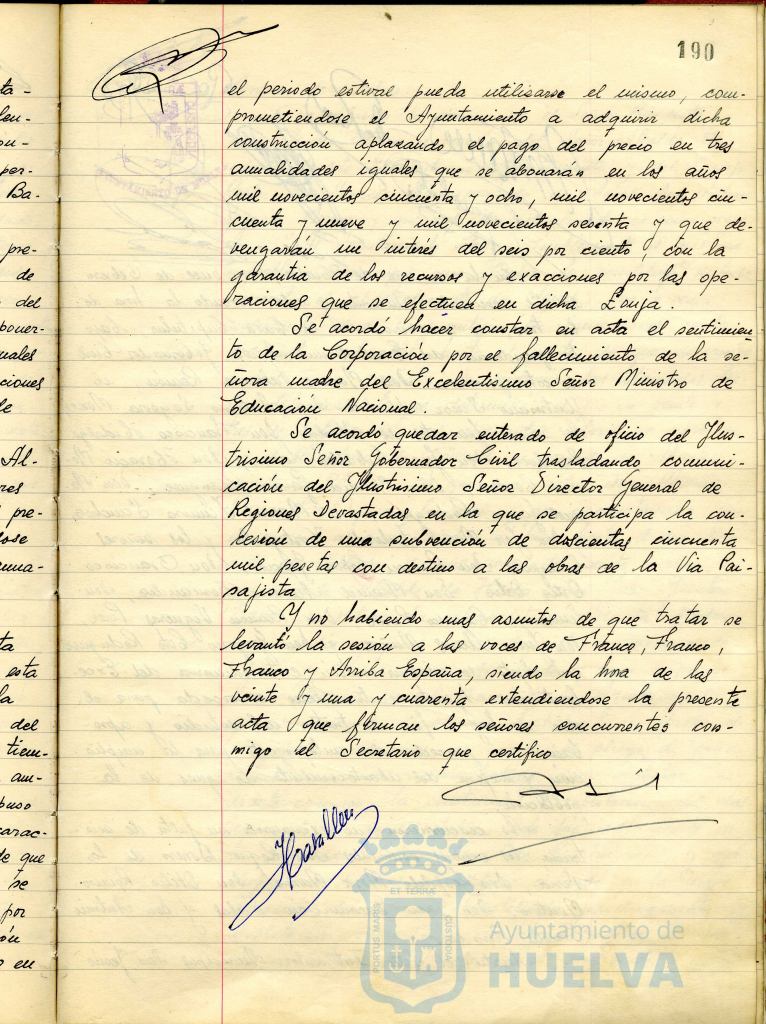 190
el periodo estival pueda utilisarse el mismo, com-
prometiendose el Ayuntamiento a adquirir dicha
construcción aplazando el pago del precio en tres
anualidades iguales que se abonarán en los años
mil novecientos cincuenta y ocho, mil novecientos cin-
cuenta y nueve y mil novecientos sesenta y que de-
vengarán un interés del seis por ciento, con la
garantia de los recursos y exacciones por las ope-
raciones que se efectuen en dicha Lonja.
Se acordó hacer constar en acta el sentimien
to de la Corporación por el fallecimiento de la se-
ñora madre del Excelentisimo Señor Ministro de
Educación Nacional.
Se acordó quedar enterado de oficio del Ilus-
trisimo Señor Gobernador Civil trasladando comuni-
cación del Ilustrisimo Señor Director General de
Regiones Devastadas en la que se participa la con-
cesión de una subvención de doscientas cincuenta
mil pesetas con destino a las obras de la Via Pai-
sajista
Y no habiendo mas asuntos de que tratar se
levantó la sesión a las voces de Franco, Franco,
Franco y Arriba España, siendo la hora de las
veinte y una y cuarenta extendiendose la presente
acta que firman los señores concurrentes con-
migo el Secretario que certifico
ta-
len-
on-
per-
Ba-
pre-
de
del
poner-
uales
ciones
le
Al-
res
pre-
dose
ma-
ta
esta
la
del
tiem-
am-
puso
carac-
de que
se
por
ón
o en
ET TERRÆ
PORTUS MARIS
CUSTODIA
Ayuntamiento de
HUELVA